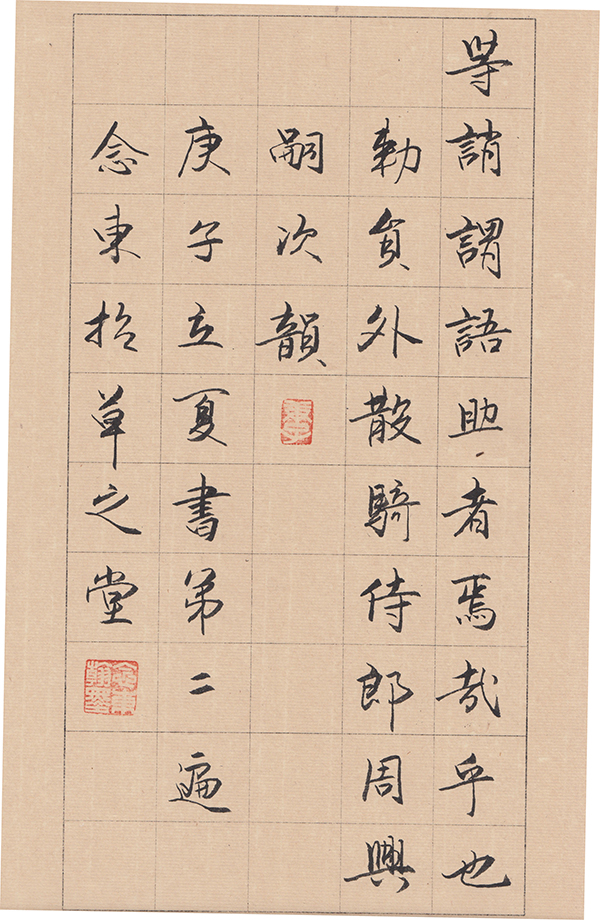 等誚謂語助者焉哉乎也
勅員外散騎侍郎周興
嗣次韻
庚子
庚子立夏書第二遍
念東於草之堂
念東翰墨